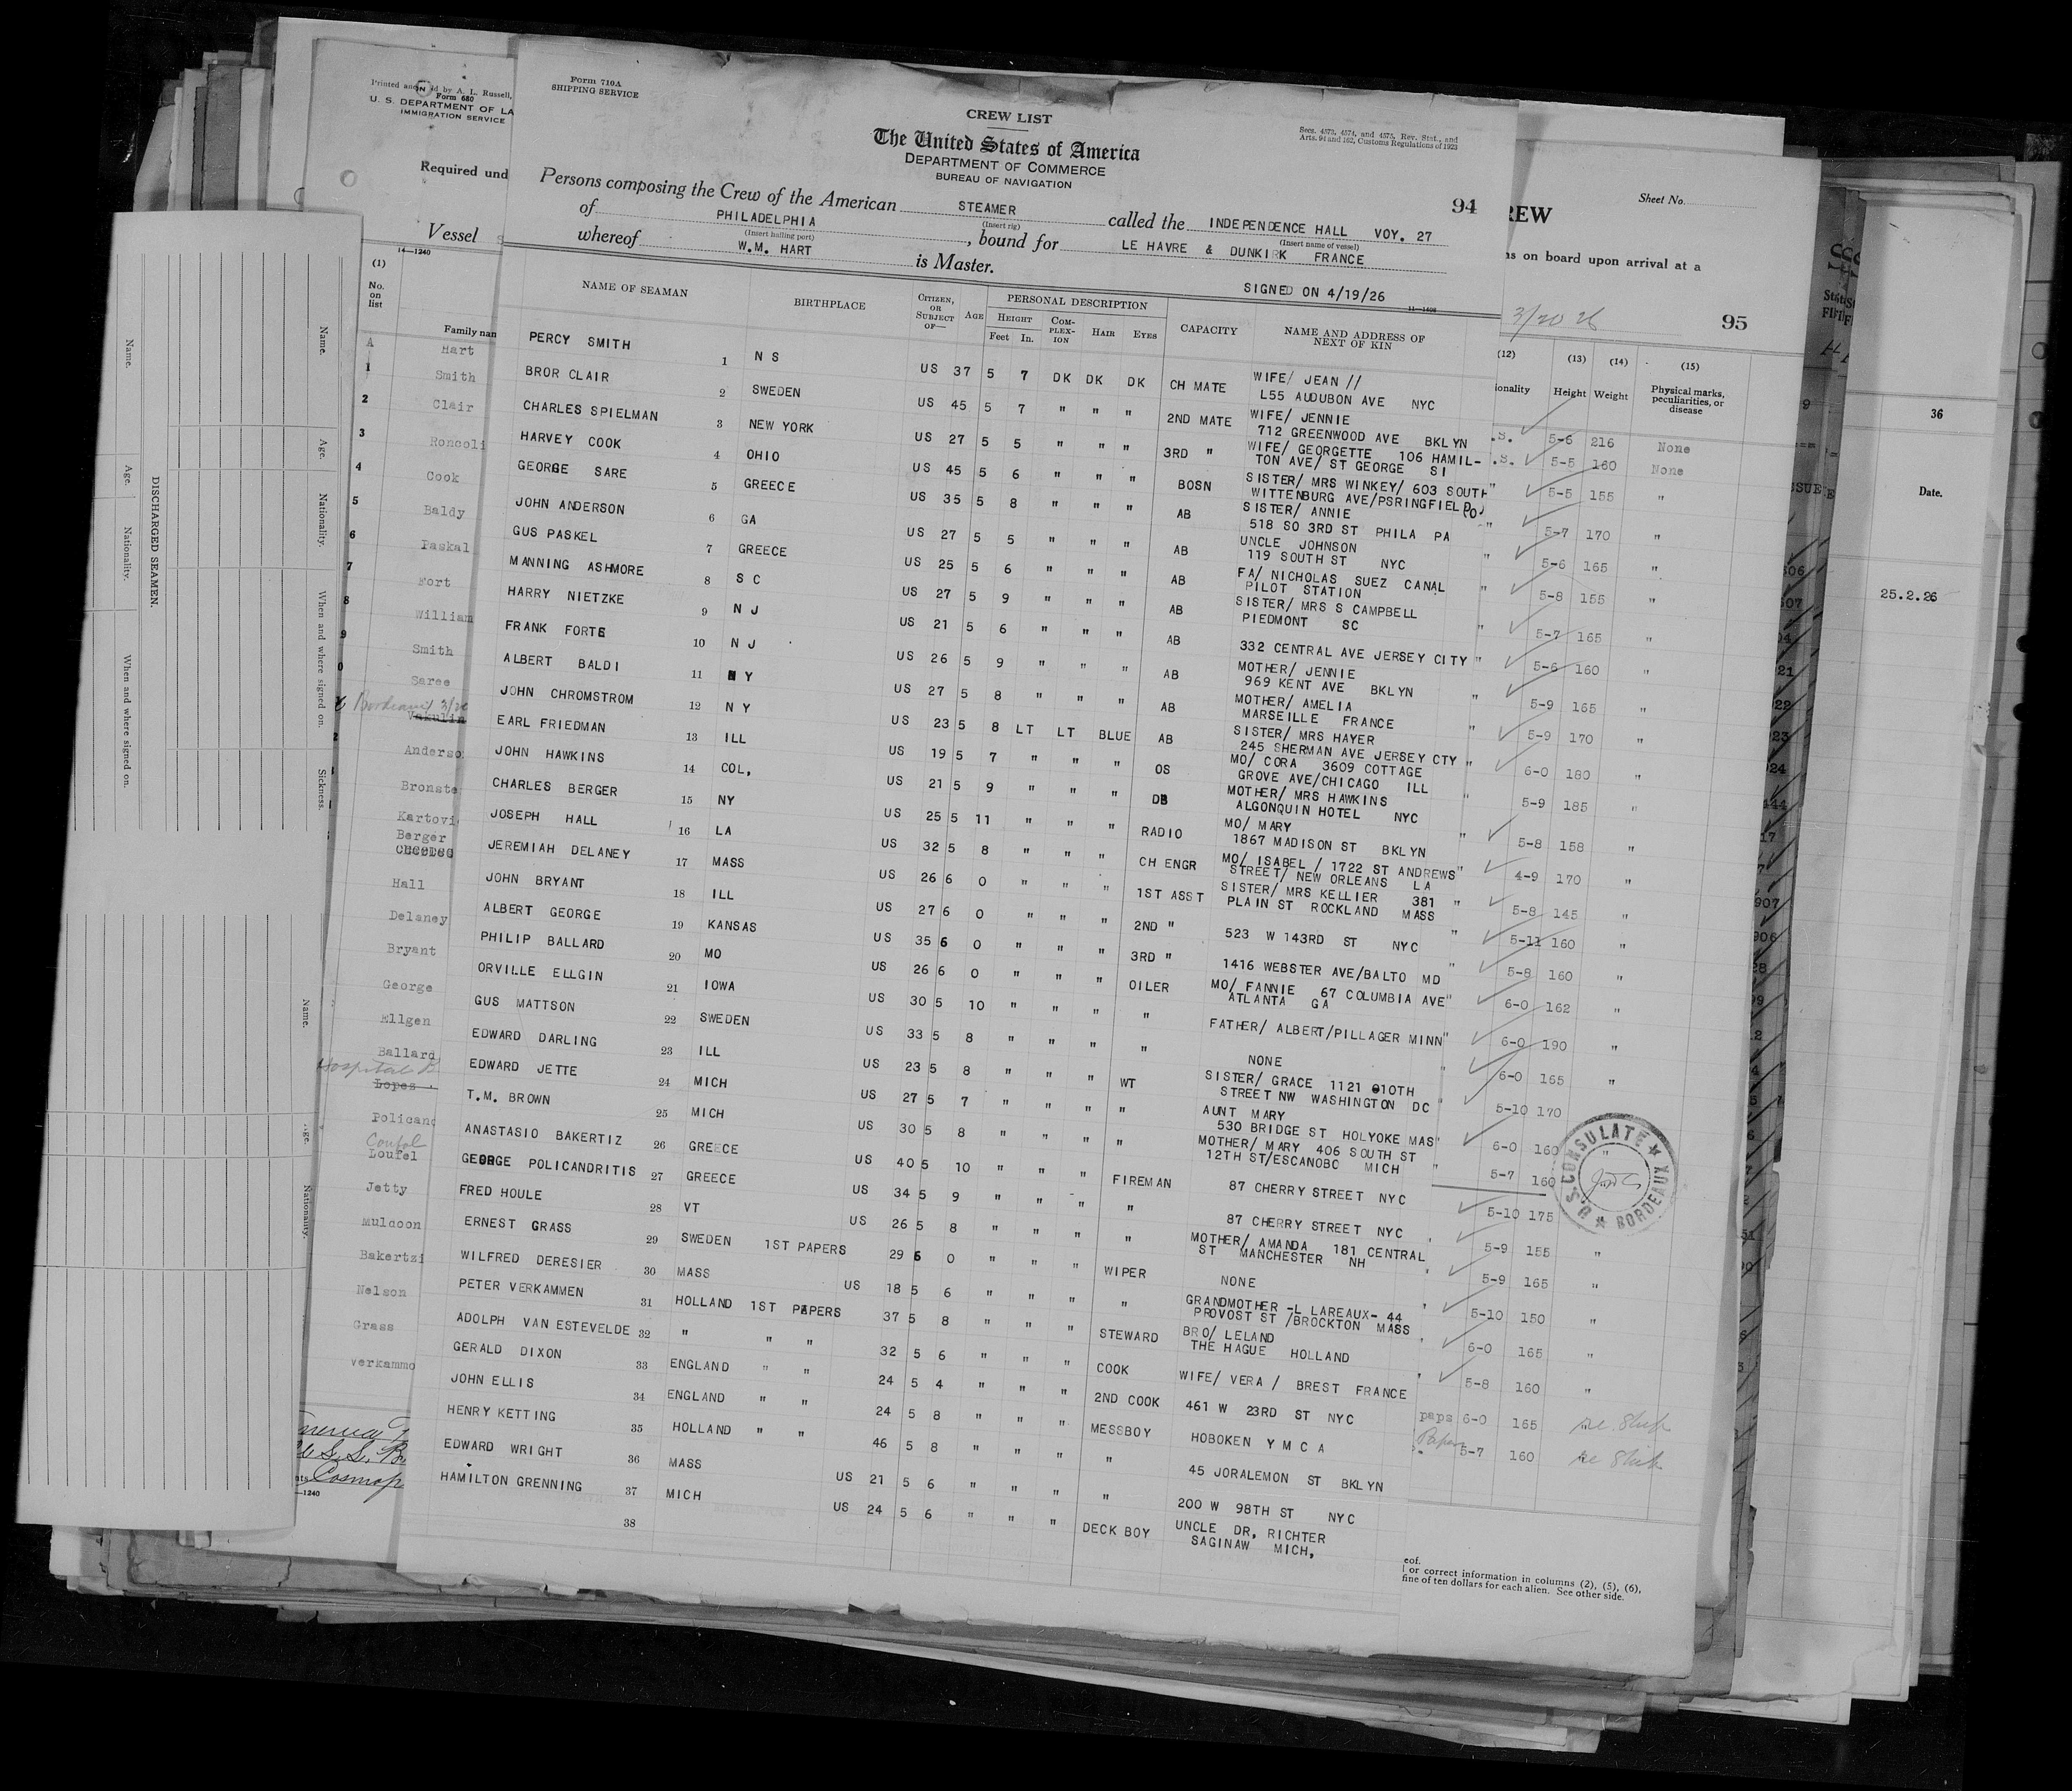 Form 710A
SHIPPING SERVICE
CREW LIST
The United States of America
DEPARTMENT OF COMMERCE
BUREAU OF NAVIGATION
Secs. 4573, 4574, and 4575, Rev. Stat., and
Arts. 94 and 162, Customs Regulations of 1923
94
Persons composing the Crew of the American STEAMER called the INDEPENDENCE HALL VOY. 27
(Insert rig) (Insert name of vessel)
of PHILADELPHIA, bound for LE HAVRE & DUNKIRK FRANCE
(Insert hailing port)
whereof W.M. HART is Master.
SIGNED ON 4/19/26
NAME OF SEAMAN BIRTHPLACE CITIZEN, OR SUBJECT OF— AGE PERSONAL DESCRIPTION CAPACITY NAME AND ADDRESS OF NEXT OF KIN
HEIGHT COM-PLEX-ION HAIR EYES
Feet In.
PERCY SMITH 1 N S US 37 5 7 DK DK DK CH MATE WIFE/ JEAN //
L55 AUDUBON AVE NYC
BROR CLAIR 2 SWEDEN US 45 5 7 " " " 2ND MATE WIFE/ JENNIE
712 GREENWOOD AVE BKLYN
CHARLES SPIELMAN 3 NEW YORK US 27 5 5 " " " 3RD " WIFE/ GEORGETTE 106 HAMIL-
TON AVE/ ST GEORGE SI
HARVEY COOK 4 OHIO US 45 5 6 " " " BOSN SISTER/ MRS WINKEY/ 603 SOUTH
WITTENBURG AVE/PSRINGFIELD O
GEORGE SARE 5 GREECE US 35 5 8 " " " AB SISTER/ ANNIE
518 SO 3RD ST PHILA PA
JOHN ANDERSON 6 GA US 27 5 5 " " " AB UNCLE JOHNSON
119 SOUTH ST NYC
GUS PASKEL 7 GREECE US 25 5 6 " " " AB FA/ NICHOLAS SUEZ CANAL
PILOT STATION
MANNING ASHMORE 8 S C US 27 5 9 " " " AB SISTER/ MRS S CAMPBELL
PIEDMONT SC
HARRY NIETZKE 9 N J US 21 5 6 " " " AB 332 CENTRAL AVE JERSEY CITY
FRANK FORTE 10 N J US 26 5 9 " " " AB MOTHER/ JENNIE
969 KENT AVE BKLYN
ALBERT BALDI 11 N Y US 27 5 8 " " " AB MOTHER/ AMELIA
MARSEILLE FRANCE
JOHN CHROMSTROM 12 N Y US 23 5 8 LT LT BLUE AB SISTER/ MRS HAYER
245 SHERMAN AVE JERSEY CTY
EARL FRIEDMAN 13 ILL US 19 5 7 " " " OS MO/ CORA 3609 COTTAGE
GROVE AVE/CHICAGO ILL
JOHN HAWKINS 14 COL, US 21 5 9 " " " DB MOTHER/ MRS HAWKINS
ALGONQUIN HOTEL NYC
CHARLES BERGER 15 NY US 25 5 11 " " " RADIO MO/ MARY
1867 MADISON ST BKLYN
JOSEPH HALL 16 LA US 32 5 8 " " " CH ENGR MO/ ISABEL / 1722 ST ANDREWS
STREET/ NEW ORLEANS LA
JEREMIAH DELANEY 17 MASS US 26 6 0 " " " 1ST ASST SISTER/ MRS KELLIER 381
PLAIN ST ROCKLAND MASS
JOHN BRYANT 18 ILL US 27 6 0 " " " 2ND " 523 W 143RD ST NYC
ALBERT GEORGE 19 KANSAS US 35 6 0 " " " 3RD " 1416 WEBSTER AVE/BALTO MD
PHILIP BALLARD 20 MO US 26 6 0 " " " OILER MO/ FANNIE 67 COLUMBIA AVE
ATLANTA GA
ORVILLE ELLGIN 21 IOWA US 30 5 10 " " " " FATHER/ ALBERT/PILLAGER MINN
GUS MATTSON 22 SWEDEN US 33 5 8 " " " " NONE
EDWARD DARLING 23 ILL US 23 5 8 " " " WT SISTER/ GRACE 1121 10TH
STREET NW WASHINGTON DC
EDWARD JETTE 24 MICH US 27 5 7 " " " " AUNT MARY
530 BRIDGE ST HOLYOKE MAS
T.M. BROWN 25 MICH US 30 5 8 " " " " MOTHER/ MARY 406 SOUTH ST
12TH ST/ESCANOBC MICH
ANASTASIO BAKERTIZ 26 GREECE US 40 5 10 " " " FIREMAN 87 CHERRY STREET NYC
GEORGE POLICANDRITIS 27 GREECE US 34 5 9 " " " " 87 CHERRY STREET NYC
FRED HOULE 28 VT US 26 5 8 " " " " MOTHER/ AMANDA 181 CENTRAL
ST MANCHESTER NH
ERNEST GRASS 29 SWEDEN 1ST PAPERS 29 6 0 " " " WIPER NONE
WILFRED DERESIER 30 MASS US 18 5 6 " " " " GRANDMOTHER -L LAREAUX- 44
PROVOST ST /BROCKTON MASS
PETER VERKAMMEN 31 HOLLAND 1ST PAPERS 37 5 8 " " " STEWARD BRO/ LELAND
THE HAGUE HOLLAND
ADOLPH VAN ESTEVELDE 32 " " " 32 5 6 " " " COOK WIFE/ VERA / BREST FRANCE
GERALD DIXON 33 ENGLAND " " 24 5 4 " " " 2ND COOK 461 W 23RD ST NYC
JOHN ELLIS 34 ENGLAND " " 24 5 8 " " " MESSBOY HOBOKEN Y M C A
HENRY KETTING 35 HOLLAND " " 46 5 8 " " " " 45 JORALEMON ST BKLYN
EDWARD WRIGHT 36 MASS US 21 5 6 " " " " 200 W 98TH ST NYC
HAMILTON GRENNING 37 MICH US 24 5 6 " " " DECK BOY UNCLE DR, RICHTER
SAGINAW MICH,
38
Form 680
U. S. DEPARTMENT OF LA
IMMIGRATION SERVICE
Required und
Vessel
14—1240
(1)
No. on list
Family nam
Hart
1 Smith
2 Clair
3 Roncoli
4 Cook
5 Baldy
6 Paskal
7 Fort
8 William
9 Smith
Saree
Bordeaux
Vakulin
Anderso
Bronste
Kartovi
Berger
Hall
Delaney
Bryant
George
Ellgen
Ballard
Hospital
Lopes
Policand
Coufal
Loufel
Jetty
Muldoon
Bakertzi
Nelson
Grass
Verkammo
DISCHARGED SEAMEN.
Name. Age. Nationality. When and where signed on.
Name. Age. Nationality. When and where signed on. Sickness.
Name. Age. Nationality.
REW
Sheet No.
ns on board upon arrival at a
3/20 26
95
(12) (13) (14) (15)
ionality Height Weight Physical marks, peculiarities, or disease
.S. 5-6 216 None
.S. 5-5 160 None
" 5-5 155 "
" 5-7 170 "
" 5-6 165 "
" 5-8 155 "
" 5-7 165 "
" 5-6 160 "
" 5-9 165 "
" 5-9 170 "
" 6-0 180 "
" 5-9 185 "
" 5-8 158 "
" 4-9 170 "
" 5-8 145 "
" 5-11 160 "
" 5-8 160 "
" 6-0 162 "
" 6-0 190 "
" 6-0 165 "
" 5-10 170
" 6-0 160 "
" 5-7 160
5-10 175
5-9 155 "
5-9 165 "
5-10 150 "
6-0 165 "
5-8 160 "
paps 6-0 165
Papers 5-7 160
U.S. CONSULATE BORDEAUX
eof.
l or correct information in columns (2), (5), (6),
fine of ten dollars for each alien. See other side.
36
Date.
25.2.26